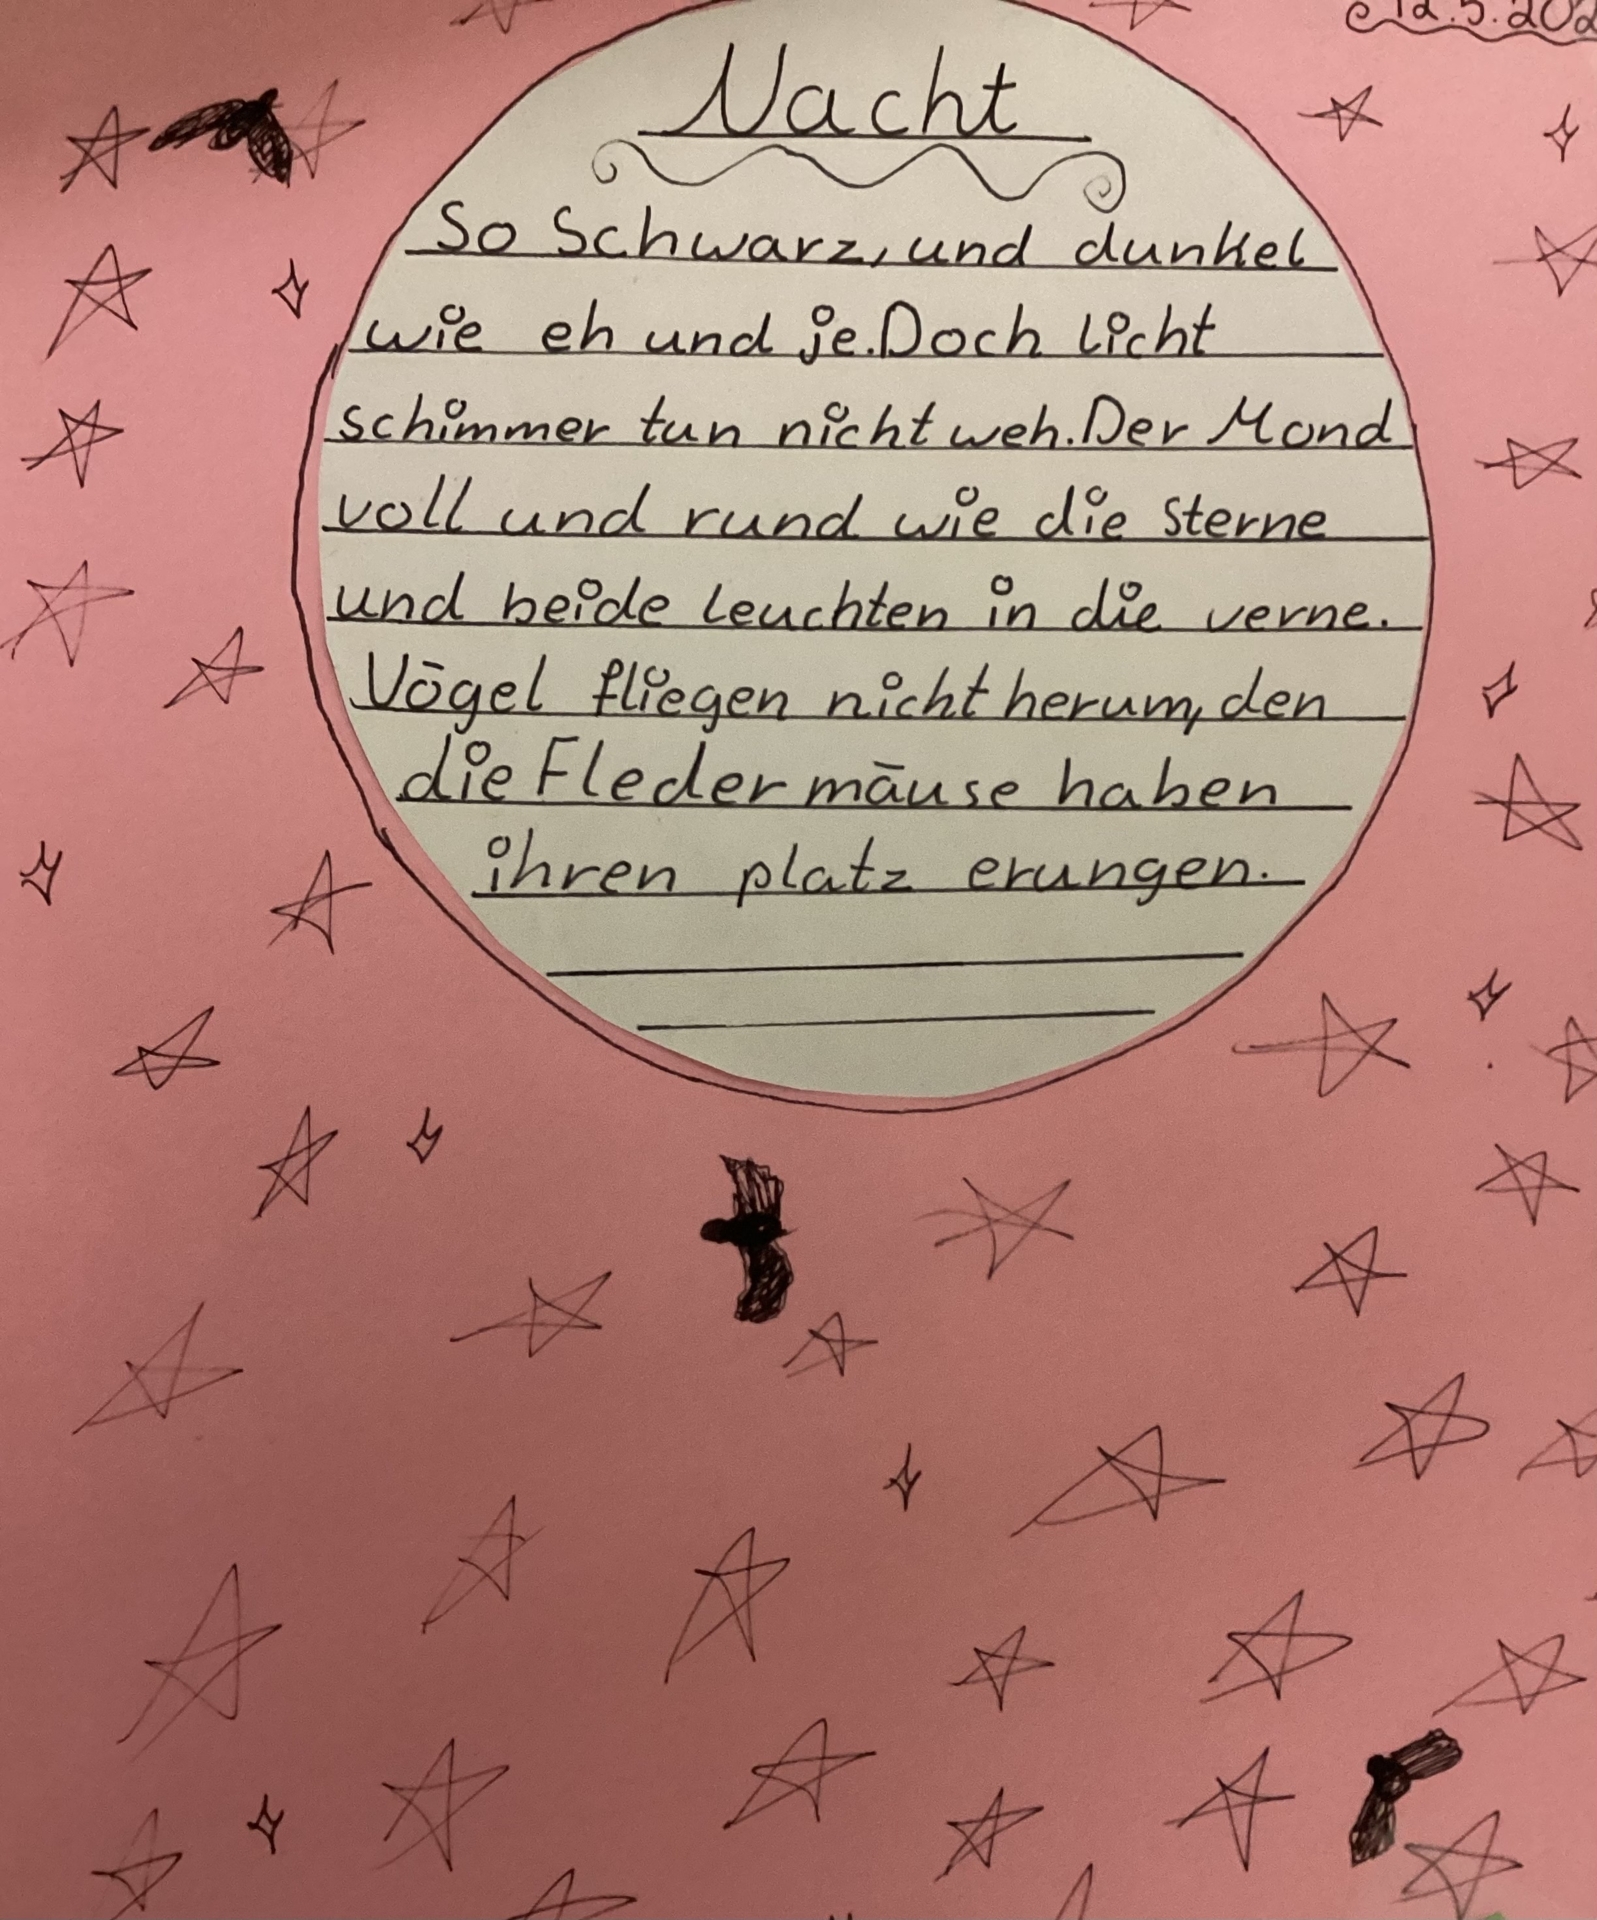 12.5.202
Nacht
So Schwarz, und dunkel
wie eh und je. Doch licht
schimmer tun nicht weh. Der Mond
voll und rund wie die Sterne
und beide leuchten in die verne.
Vögel fliegen nicht herum, den
die Fledermäuse haben
ihren platz erungen.